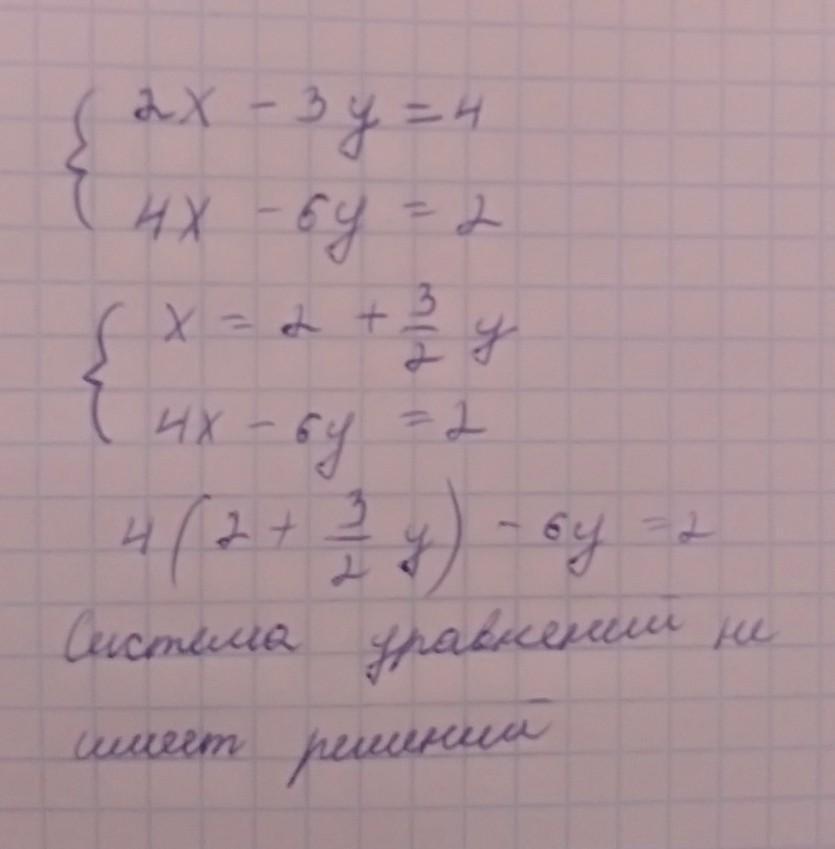 2x - 3y = 4
4x - 6y = 2
x = 2 + 3/2 y
4x - 6y = 2
4(2 + 3/2 y) - 6y = 2
Система уравнений не
имеет решений